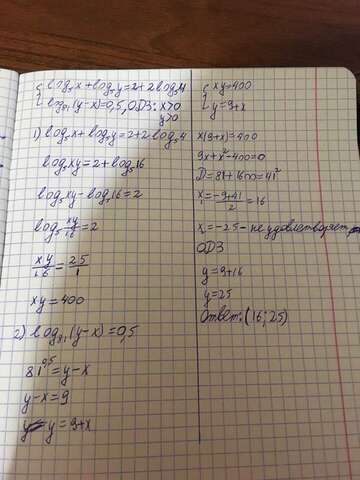 { log₅x + log₅y = 2 + 2log₅4
{ log₈₁(y-x) = 0,5, ОДЗ: x>0
y>0
1) log₅x + log₅y = 2 + 2log₅4
log₅xy = 2 + log₅16
log₅xy - log₅16 = 2
log₅ xy/16 = 2
xy/16 = 25/1
xy = 400
2) log₈₁(y-x) = 0,5
81^0,5 = y-x
y-x = 9
y = 9+x
{ xy = 400
{ y = 9+x
x(9+x) = 400
9x + x² - 400 = 0
D = 81 + 1600 = 41²
x₁ = (-9+41)/2 = 16
x₂ = -25 - не удовлетворяет
ОДЗ
y = 9+16
y = 25
Ответ: (16; 25)